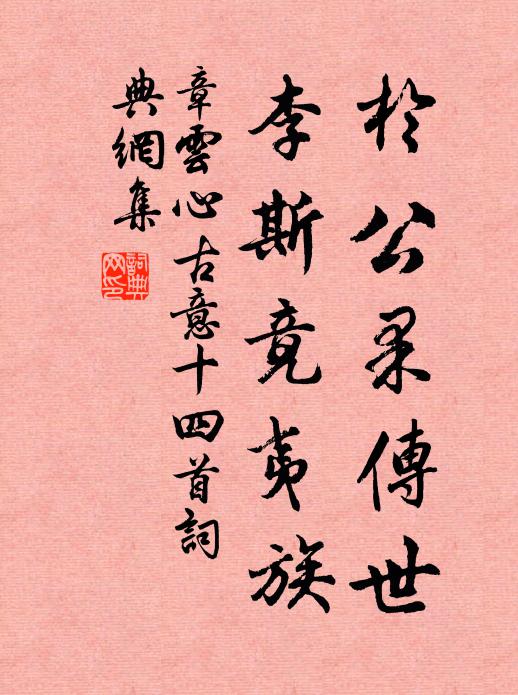 於公果傳世
李斯竟夷族
章雲心古意十四首詞
典網集
詞典
网印